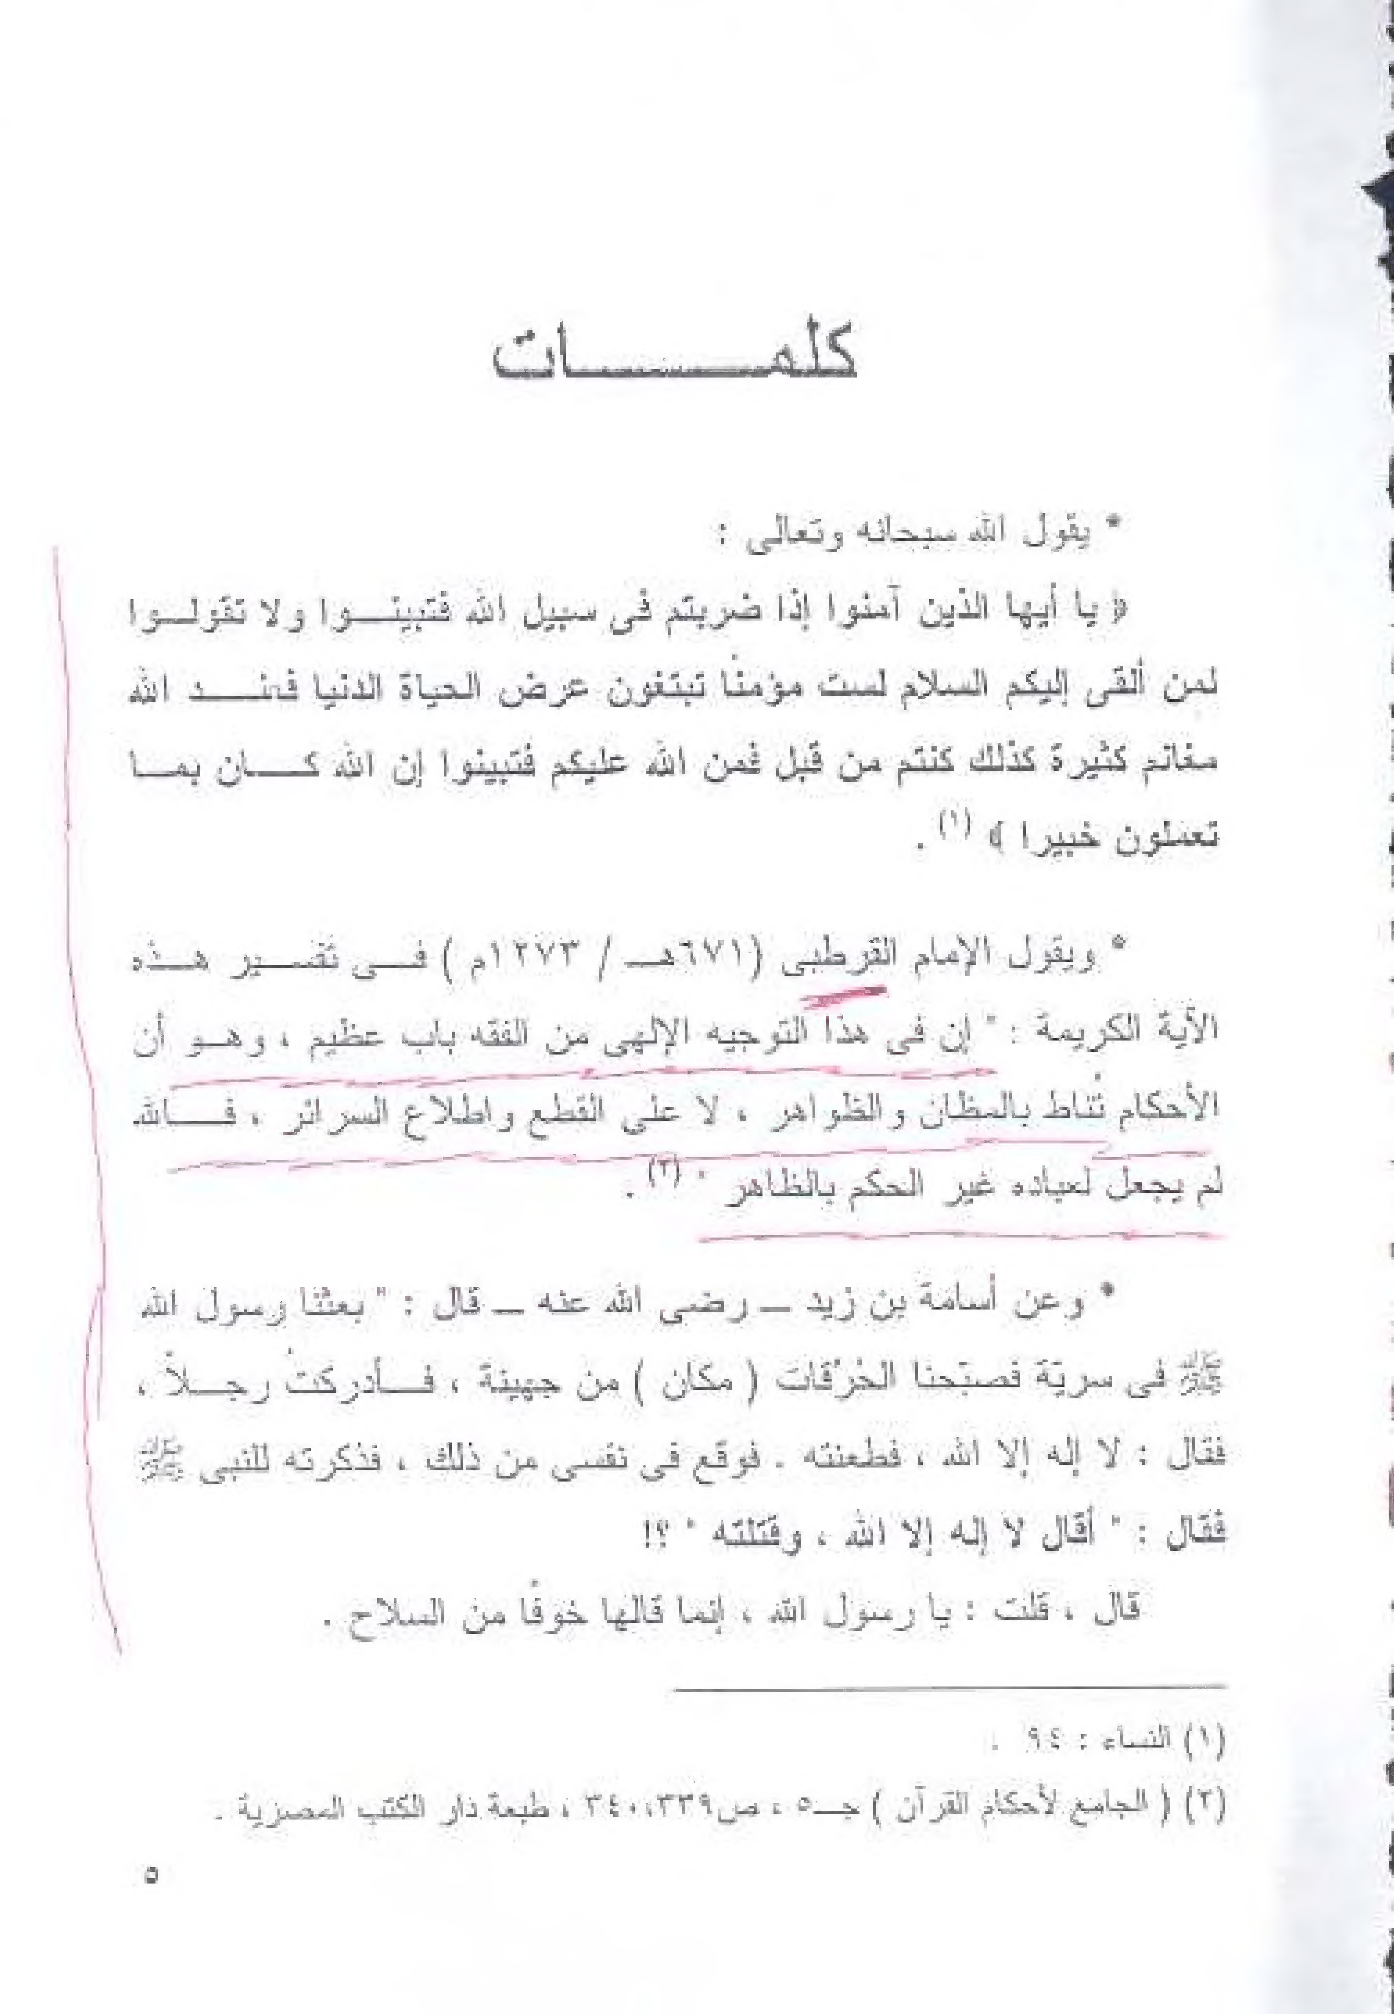 كلمـــــات
* يقول الله سبحانه وتعالى :
﴿ يا أيها الذين آمنوا إذا ضربتم فى سبيل الله فتبينـــوا ولا تقولــوا
لمن ألقى إليكم السلام لست مؤمنًا تبتغون عرض الحياة الدنيا فعنـــد الله
مغانم كثيرة كذلك كنتم من قبل فمن الله عليكم فتبينوا إن الله كـــان بمــا
تعملون خبيرا ﴾ (١) .
* ويقول الإمام القرطبى (٦٧١هــ / ١٢٧٣م ) فــى تفســير هــذه
الآية الكريمة : " إن فى هذا التوجيه الإلهى من الفقه باب عظيم ، وهــو أن
الأحكام تُناط بالمظان والظواهر ، لا على القطع واطلاع السرائر ، فـــالله
لم يجعل لعباده غير الحكم بالظاهر " (٢) .
* وعن أسامة بن زيد ــ رضى الله عنه ــ قال : " بعثنا رسول الله
ﷺ فى سريّة فصبّحنا الحُرُقات ( مكان ) من جهينة ، فـــأدركتُ رجــلاً ،
فقال : لا إله إلا الله ، فطعنته . فوقع فى نفسى من ذلك ، فذكرته للنبى ﷺ
فقال : " أقال لا إله إلا الله ، وقتلته " ؟!
قال ، قلت : يا رسول الله ، إنما قالها خوفًا من السلاح .
(١) النساء : ٩٤ .
(٢) ( الجامع لأحكام القرآن ) جــ٥ ، ص٣٣٩،٣٤٠ ، طبعة دار الكتب المصرية .
٥